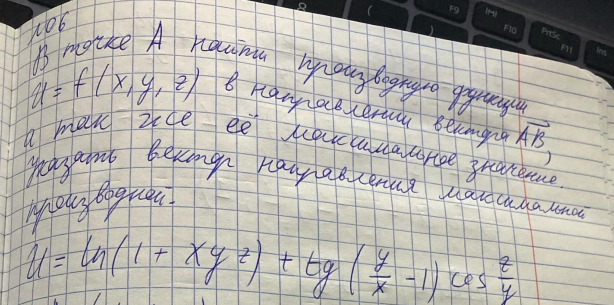 №6
В точке А найти производную функции
U = f(x, y, z) в направлении вектора AB,
а так же её максимальное значение.
Указать вектор направления максимальной
производной.
U = ln(1 + xyz) + tg(y/x - 1) cos z/y
F9
F10
PrtSc
F11
Ins